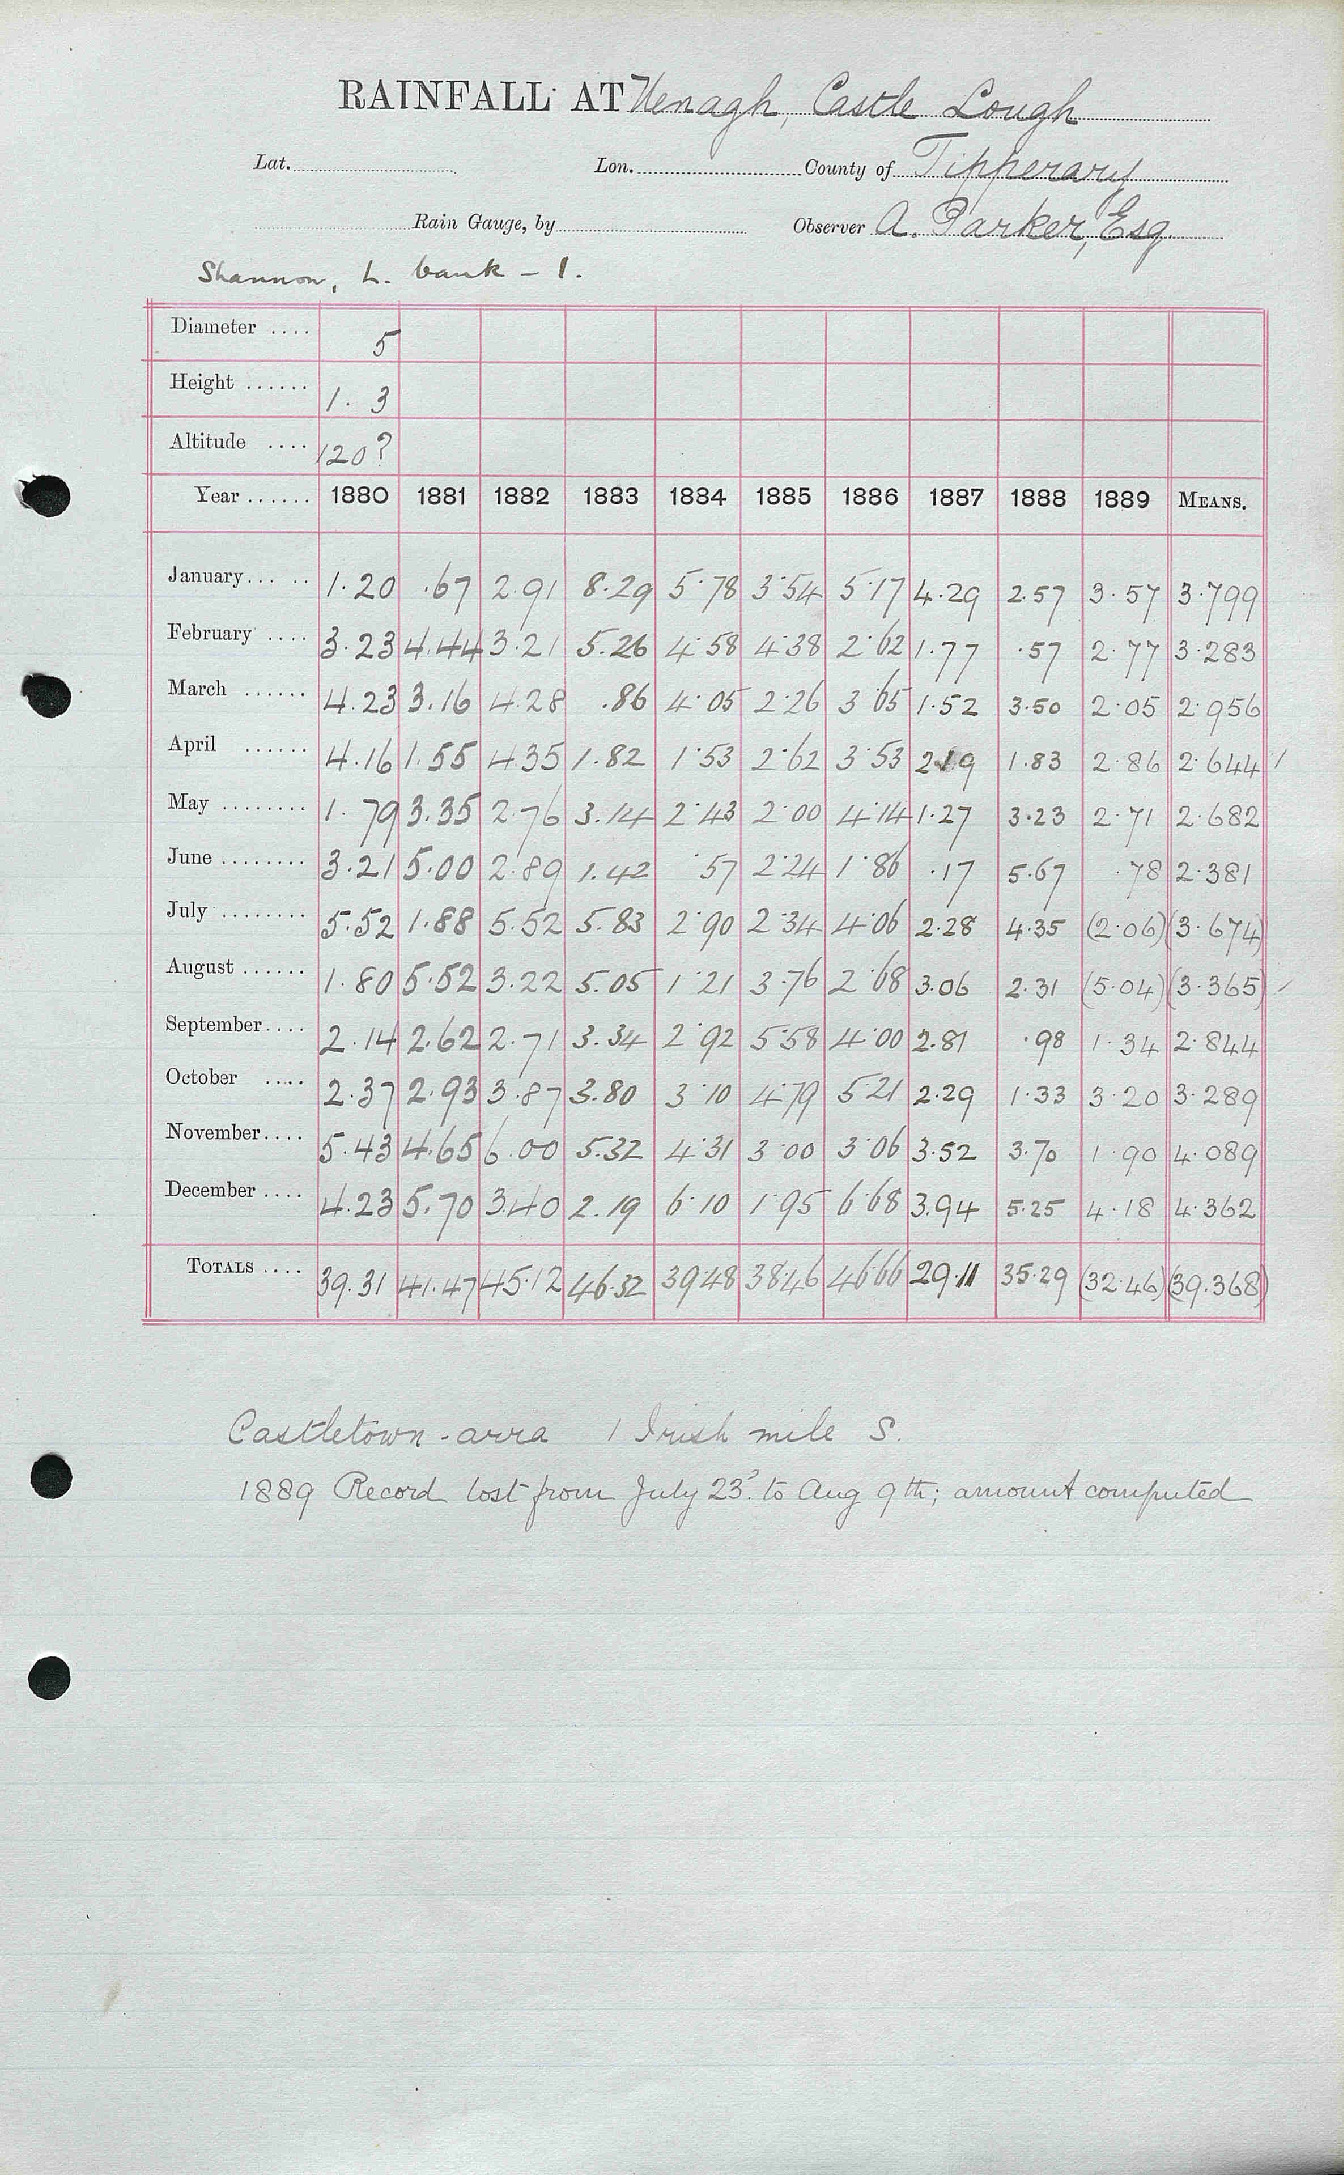 RAINFALL AT Nenagh, Castle Lough
Lat. Lon. County of Tipperary
Rain Gauge, by Observer A. Parker, Esq
Shannon, L. bank - 1.
Diameter .... 5
Height ...... 1. 3
Altitude .... 120?
Year ...... 1880 1881 1882 1883 1884 1885 1886 1887 1888 1889 MEANS.
January... .. 1.20 .67 2.91 8.29 5.78 3.54 5.17 4.29 2.57 3.57 3.799
February .... 3.23 4.44 3.21 5.26 4.58 4.38 2.62 1.77 .57 2.77 3.283
March ...... 4.23 3.16 4.28 .86 4.05 2.26 3.65 1.52 3.50 2.05 2.956
April ...... 4.16 1.55 4.35 1.82 1.53 2.62 3.53 2.19 1.83 2.86 2.644
May ........ 1.79 3.35 2.76 3.14 2.43 2.00 4.14 1.27 3.23 2.71 2.682
June ........ 3.21 5.00 2.89 1.42 .57 2.24 1.86 .17 5.67 .78 2.381
July ........ 5.52 1.88 5.52 5.83 2.90 2.34 4.06 2.28 4.35 (2.06) (3.674)
August ...... 1.80 5.52 3.22 5.05 1.21 3.76 2.68 3.06 2.31 (5.04) (3.365)
September.... 2.14 2.62 2.71 3.34 2.92 5.58 4.00 2.81 .98 1.34 2.844
October .... 2.37 2.93 3.87 3.80 3.10 4.79 5.21 2.29 1.33 3.20 3.289
November.... 5.43 4.65 6.00 5.32 4.31 3.00 3.06 3.52 3.70 1.90 4.089
December .... 4.23 5.70 3.40 2.19 6.10 1.95 6.68 3.94 5.25 4.18 4.362
TOTALS .... 39.31 41.47 45.12 46.32 39.48 38.46 46.66 29.11 35.29 (32.46) (39.368)
Castletown-arra 1 Irish mile S.
1889 Record lost from July 23d. to Aug 9th; amount computed